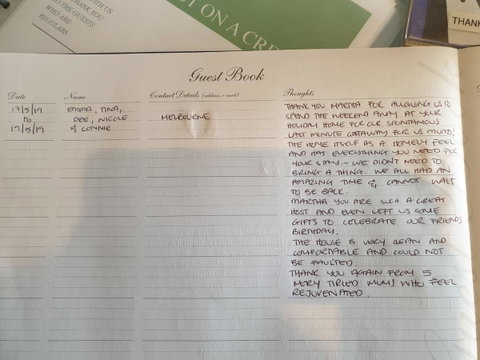 THANK YOU
WITH US
WHO ARE
THE GUESTS
REGULARS
T ON A CRE
THANK
Guest Book
Date Name Contact Details (address, e-mail) Thoughts
17/5/19 EMMA, TINA,
TO DEE, NICOLE MELBOURNE
19/5/19 & CONNIE
THANK YOU MARTHA FOR ALLOWING US TO
SPEND THE WEEKEND AWAY AT YOUR
HOLIDAY HOME FOR OUR SPONTANEOUS
LAST MINUTE GETAWAY FOR US MUMS!
THE HOME ITSELF AS A HOMELY FEEL
AND HAS EVERYTHING YOU NEED FOR
YOUR STAY - WE DIDN'T NEED TO
BRING A THING. WE ALL HAD AN
AMAZING TIME & CANNOT WAIT
TO BE BACK.
MARTHA YOU ARE SUCH A GREAT
HOST AND EVEN LEFT US SOME
GIFTS TO CELEBRATE OUR FRIENDS
BIRTHDAY.
THE HOUSE IS VERY CLEAN AND
COMFORTABLE AND COULD NOT
BE FAULTED.
THANK YOU AGAIN FROM 5
VERY TIRED MUMS WHO FEEL
REJUVENATED.